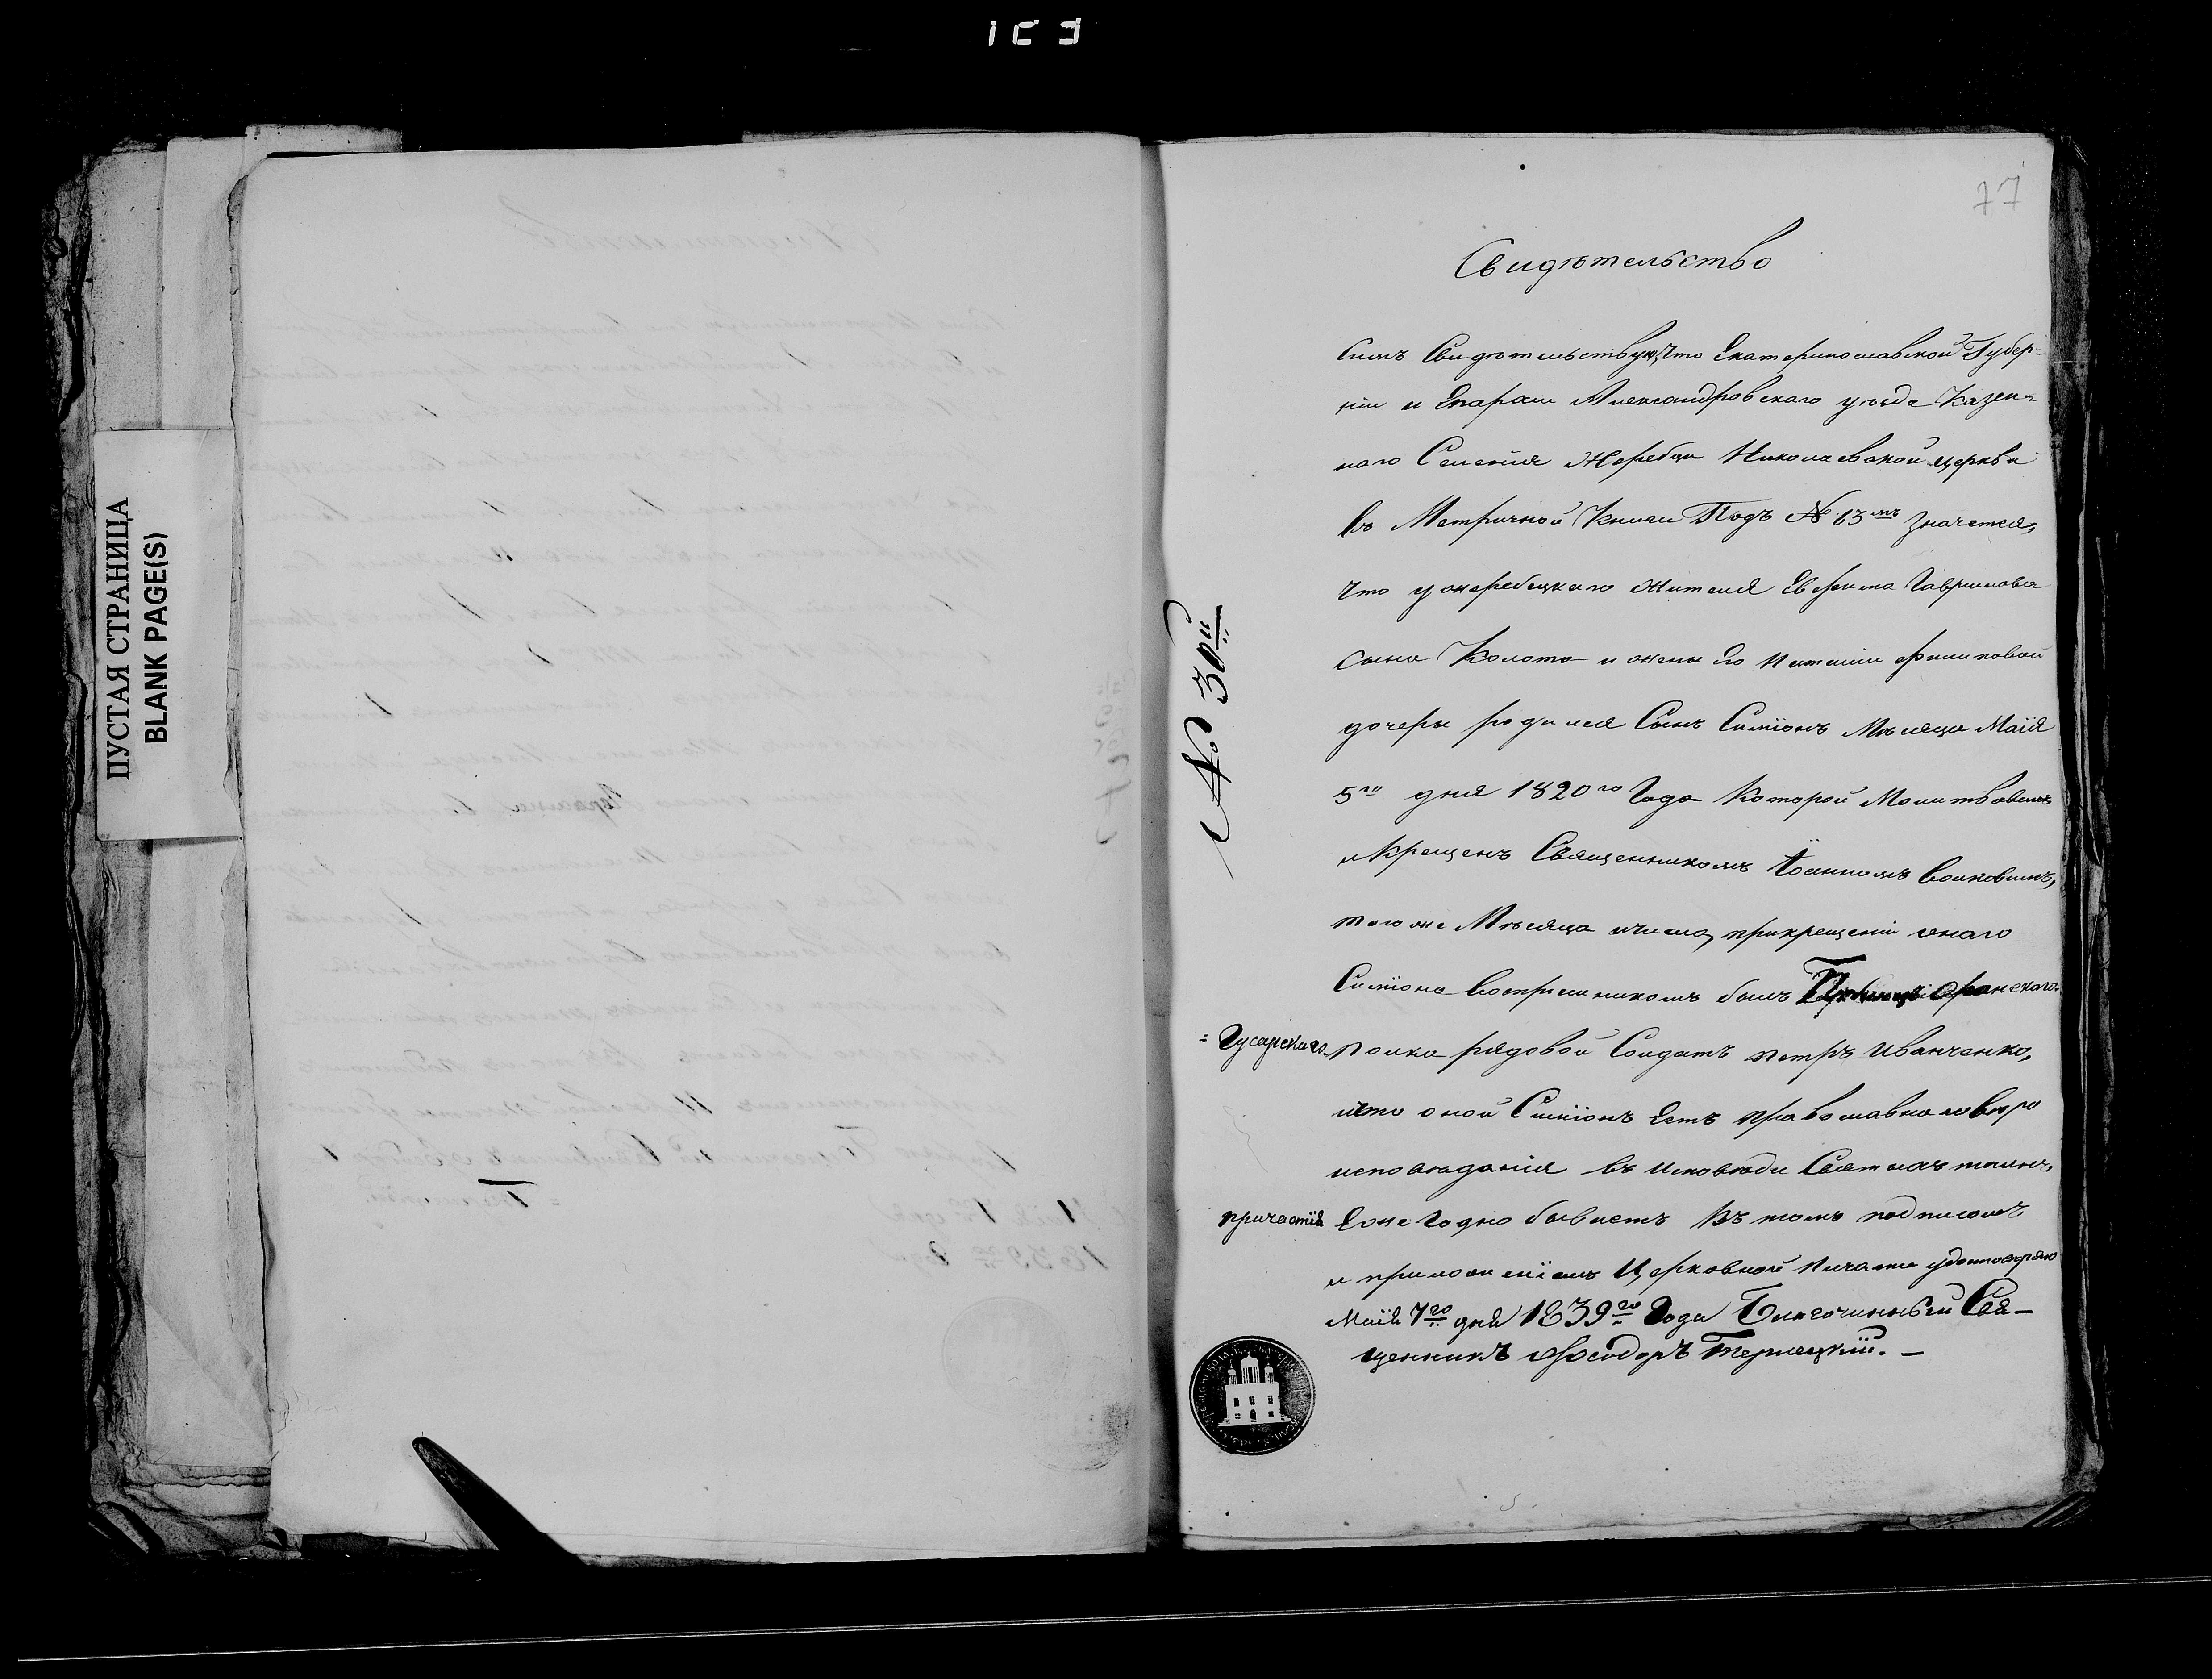 103
ПУСТАЯ СТРАНИЦА
BLANK PAGE(S)
77
Свидѣтельство
Симъ Свидѣтельствую, что Екатеринославской Губер=
нии и Епархии Александровскаго уѣзда Казен=
наго Селения Жеребца Николаевской церкви
въ Метричной Книги Подъ № 63мъ значется,
что у жеребецкаго жителя Гаврилова
сына Колота и жены его Филиповой
дочери родился Сынъ Симіонъ Мѣсяца Маія
5го дня 1820го Года Которой Молитвованъ
и Крещенъ Священникомъ Іоанномъ Волковымъ,
того же Мѣсяца и числа, при крещеніи онаго
Симіона воспріемникомъ былъ
= Гусарскаго полка рядовой Солдатъ Петръ Иванченко,
и что оной Симіонъ Есть православнаго вѣро
исповѣданія въ исповѣди Святыхъ таинъ
причастія Ежегодно бываетъ Въ томъ подписомъ
и приложеніемъ Церковной печати удостовѣряю
Маія 7го дня 1839го Года Благочинный Свя-
щенникъ Феодоръ Тернецкій. -
№ 30й